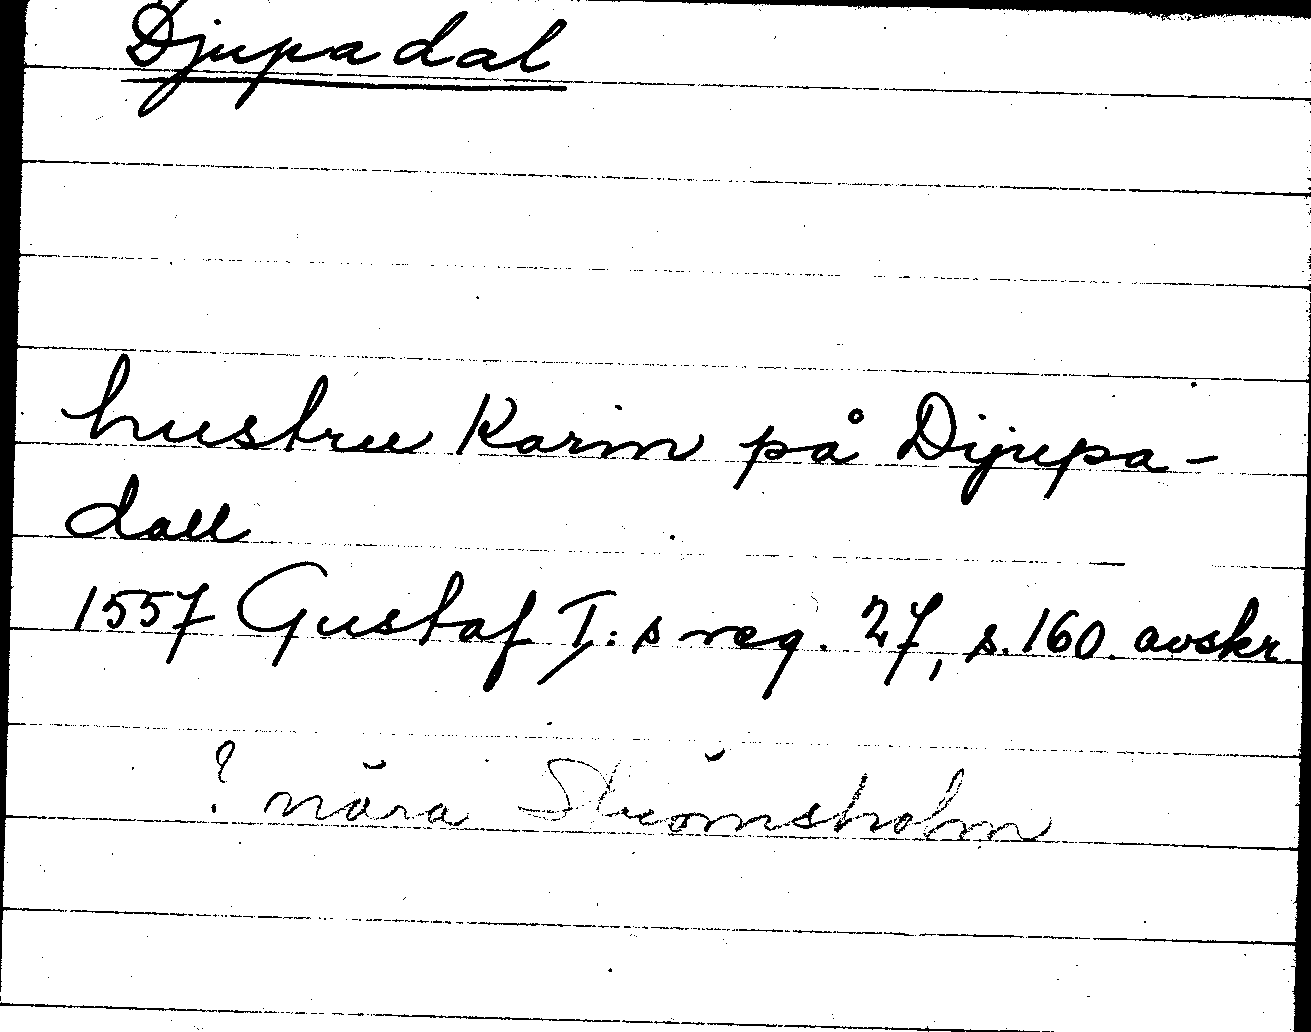 Djupadal
hustru Karin på Dijupa-
dall
1557 Gustaf I:s reg. 27, s. 160. avskr.
? nära Strömsholm